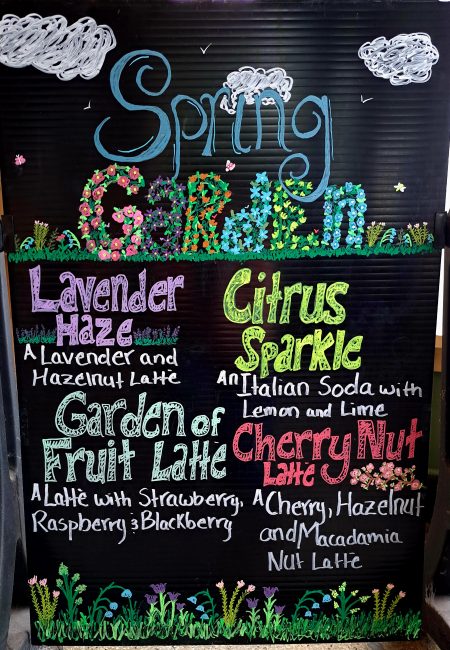 Spring
Garden
Lavender
Haze
A Lavender and
Hazelnut Latte
Citrus
Sparkle
An Italian Soda with
Lemon and Lime
Garden of
Fruit Latte
A Latte with Strawberry,
Raspberry & Blackberry
Cherry Nut
Latte
A Cherry, Hazelnut
and Macadamia
Nut Latte